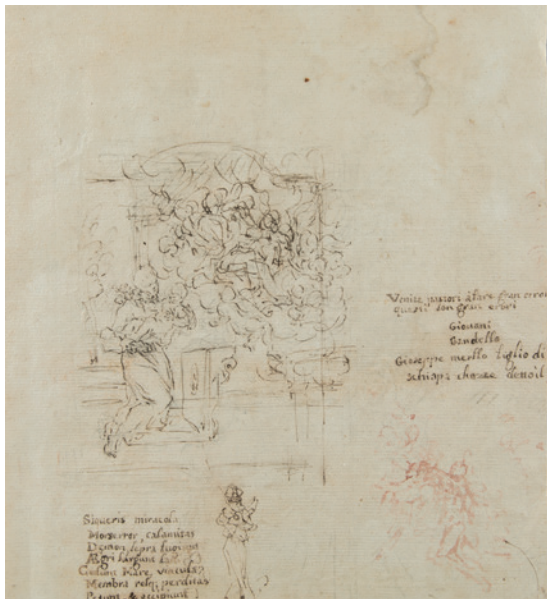 Venite pittori á fare gran errori
questi son gran erori
Giovani
Bandello
Gioseppe merllo figlio di
schiapa
Siqueris miracola
Mors error, calamitas
Demon, lepra fugiunt
Ægri surgunt
Cedunt Mare, vincula
Membra resq; perditas
Petunt & accipiunt